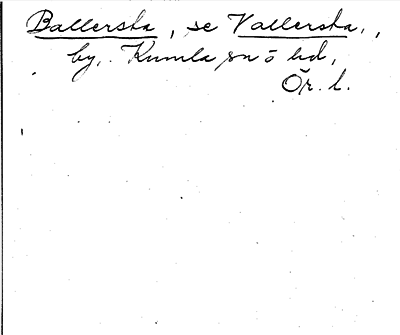 Ballersta, se Vallersta,,
by, Kumla sn o hd,
Ör. l.